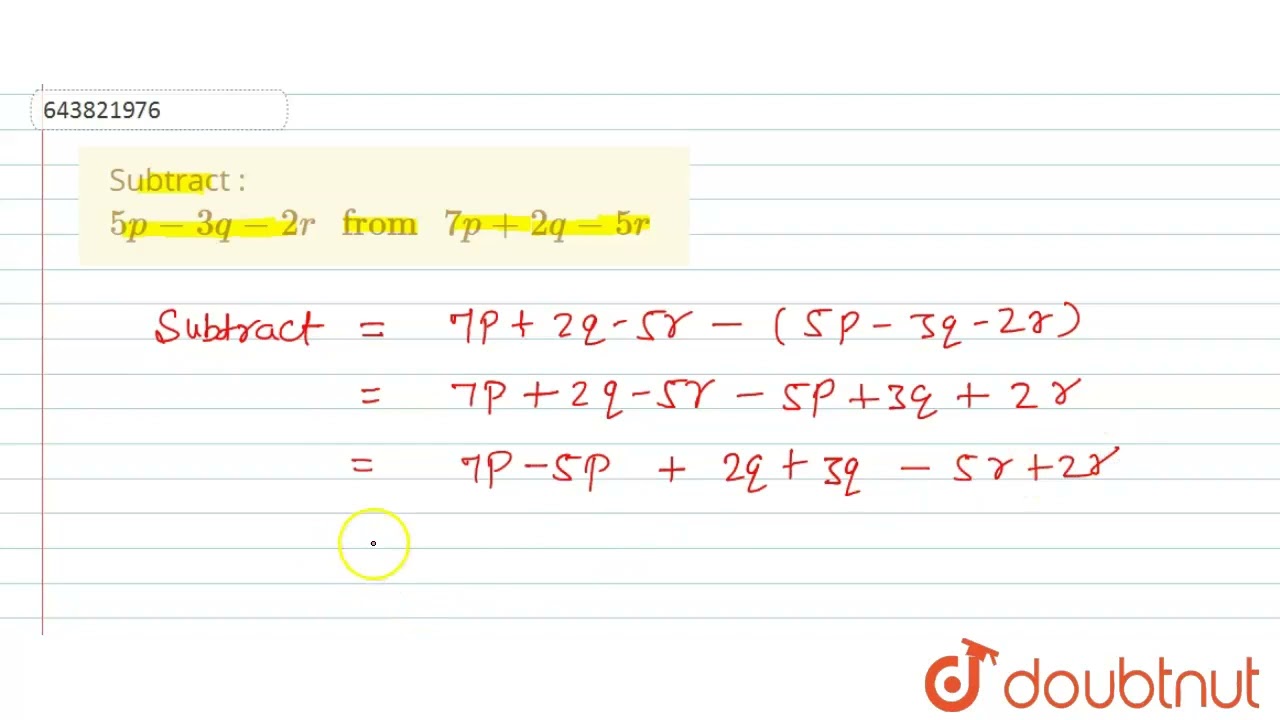 643821976
Subtract :
5p − 3q − 2r from 7p + 2q − 5r
Subtract = 7p + 2q - 5r - ( 5p - 3q - 2r )
= 7p + 2q - 5r - 5p + 3q + 2r
= 7p - 5p + 2q + 3q - 5r + 2r
doubtnut